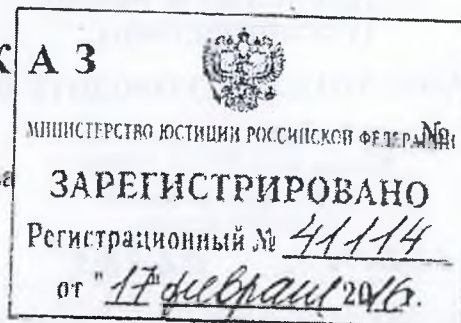 К А З
МИНИСТЕРСТВО ЮСТИЦИИ РОССИЙСКОЙ ФЕДЕРАЦИИ
№
а
ЗАРЕГИСТРИРОВАНО
Регистрационный № 41114
от "17" февраля 2016г.